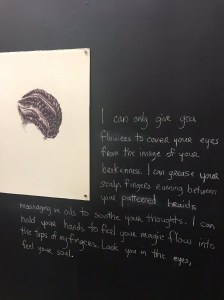 I can only give you
flowers to cover your eyes
from the image of your
barkenness. I can grease your
scalp, fingers running between
your pattered braids
massaging in oils to soothe your thoughts. I can
hold your hands to feel your magic flow into
the tips of my fingers. Look you in the eyes,
feel your soul.